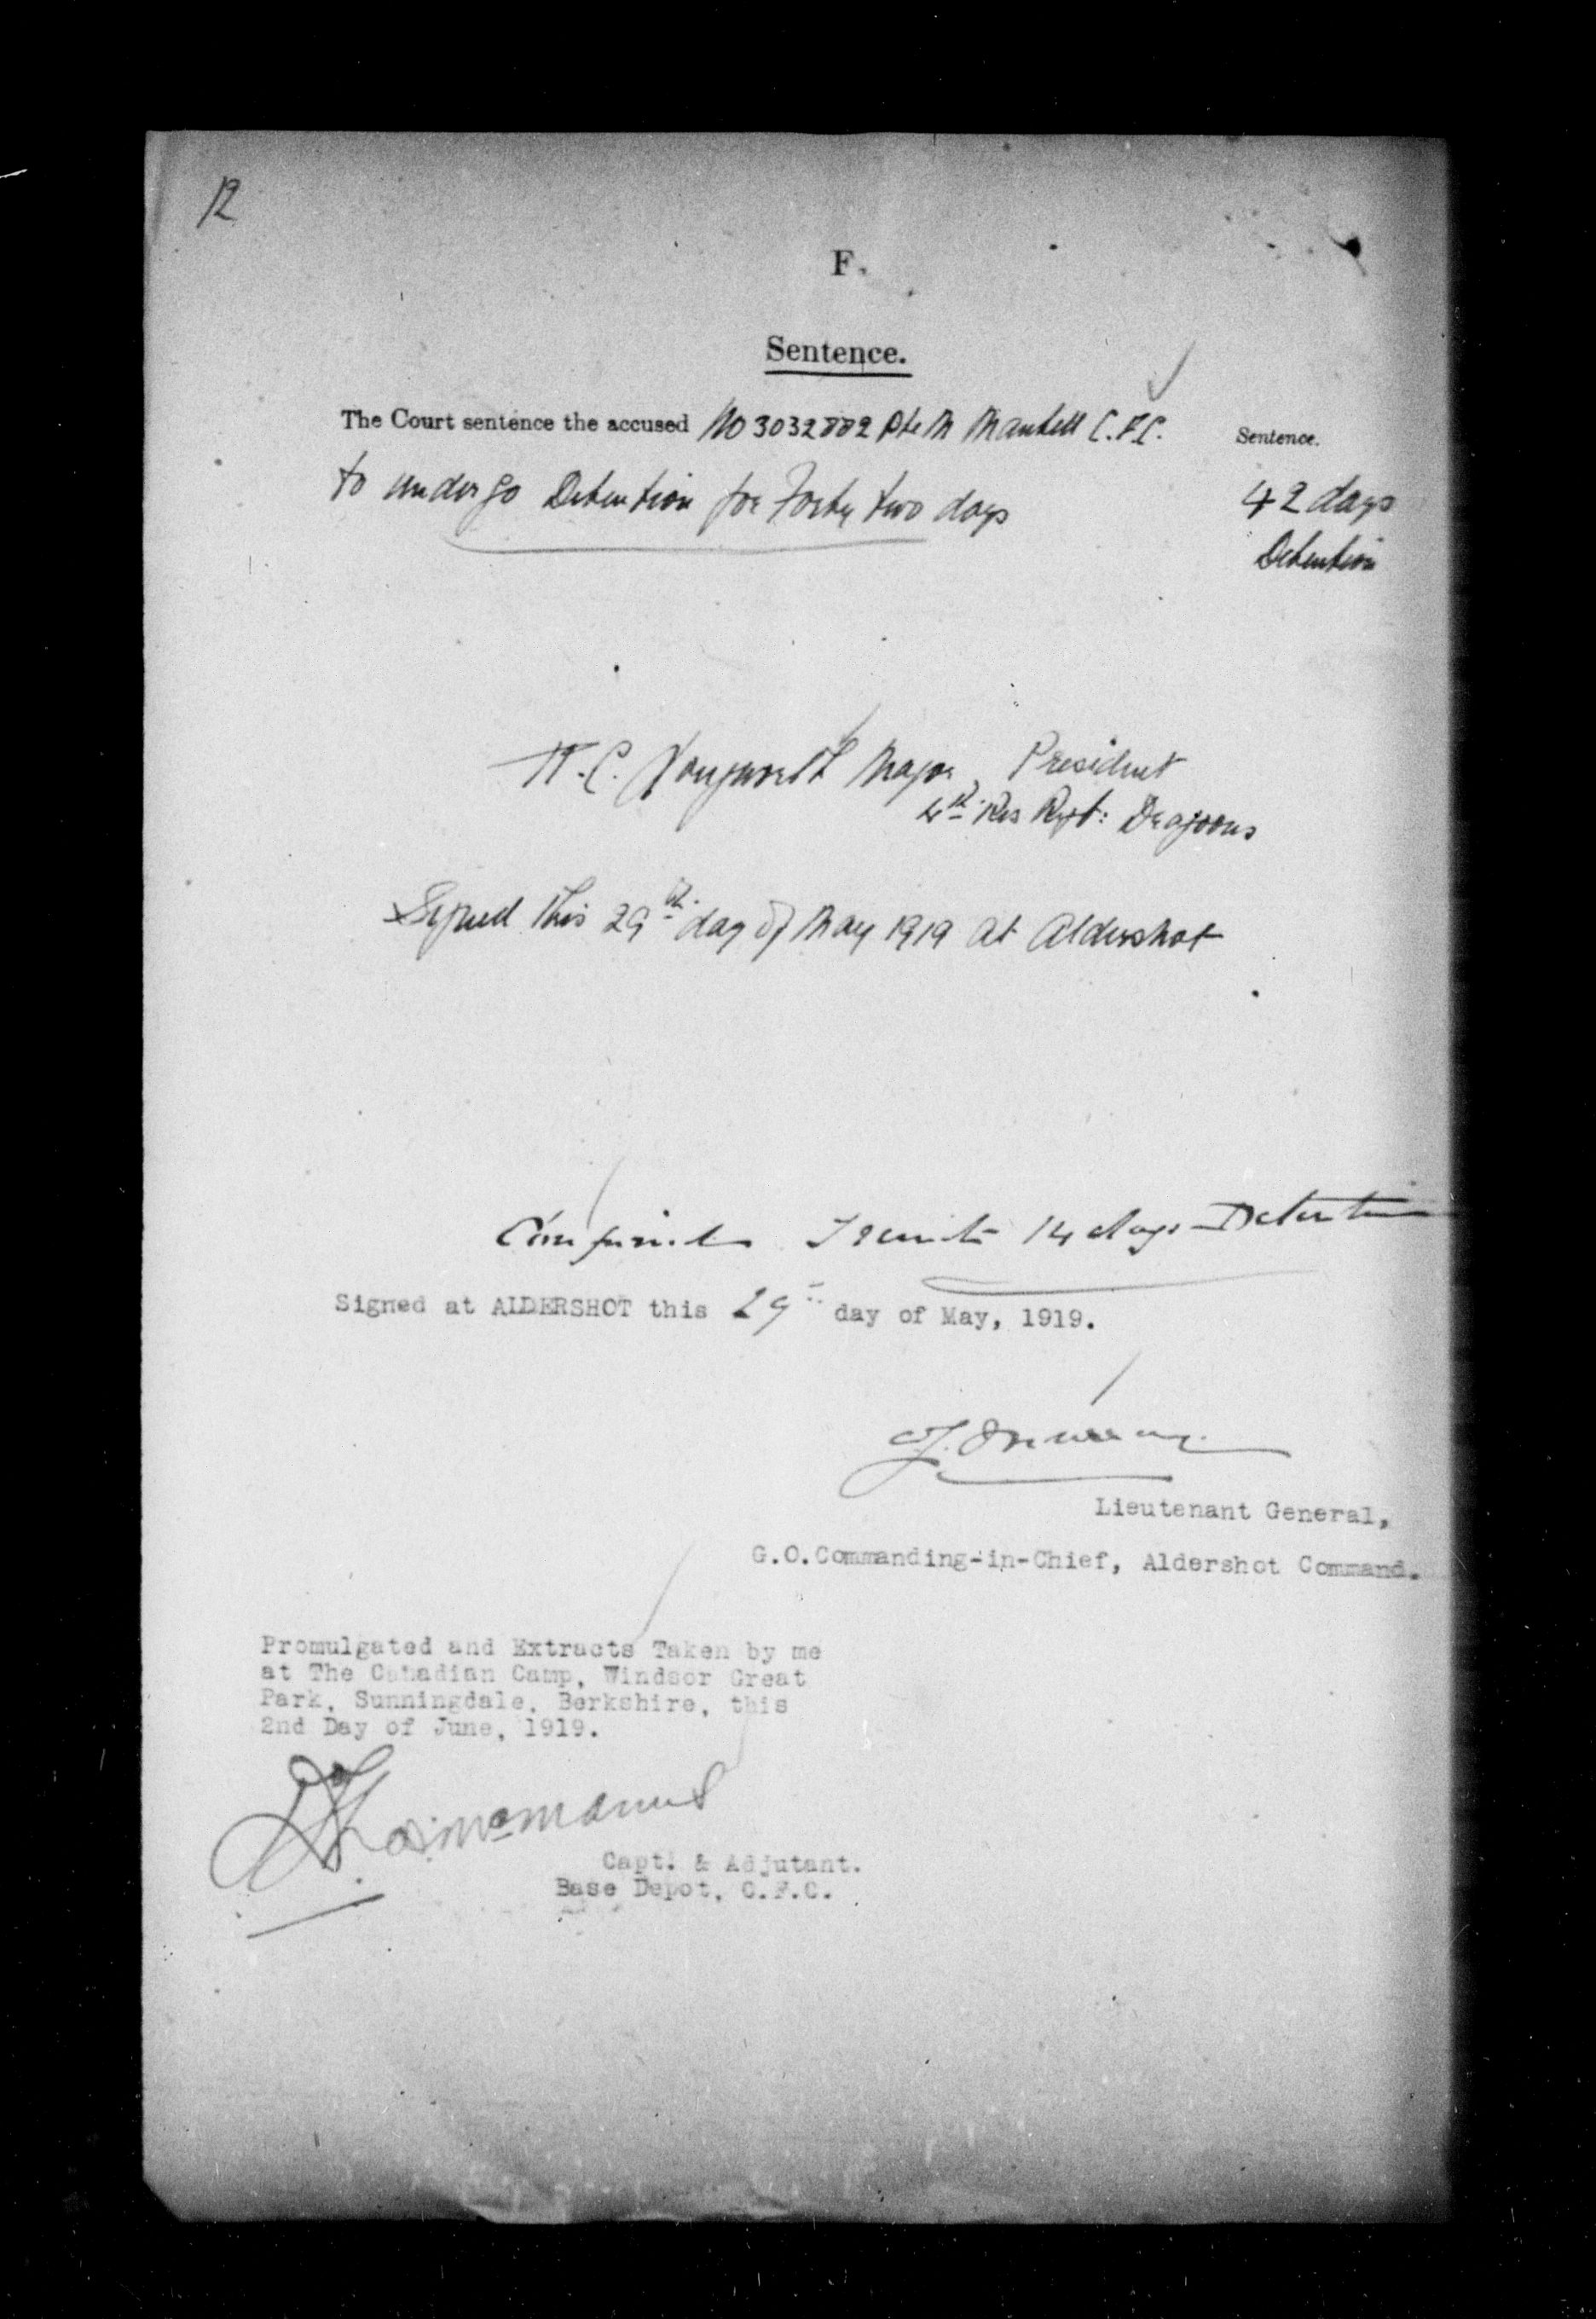 12
F.
Sentence.
The Court sentence the accused No 3032882 Pte M Mantell C.F.C.
Sentence.
to undergo Detention for Forty two days
42 days
Detention
H.C. Major President
4th Res Regt: Dragoons
Signed this 29th day of May 1919 at Aldershot
Confirmed I remit 14 days Detention
Signed at ALDERSHOT this 29th day of May, 1919.
Lieutenant General,
G.O.Commanding-in-Chief, Aldershot Command.
Promulgated and Extracts Taken by me
at The Canadian Camp, Windsor Great
Park, Sunningdale, Berkshire, this
2nd Day of June, 1919.
Capt. & Adjutant.
Base Depot, C.F.C.